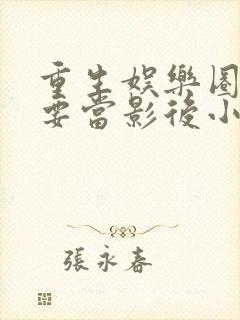 重生娛樂圈
要當影後小
張永春